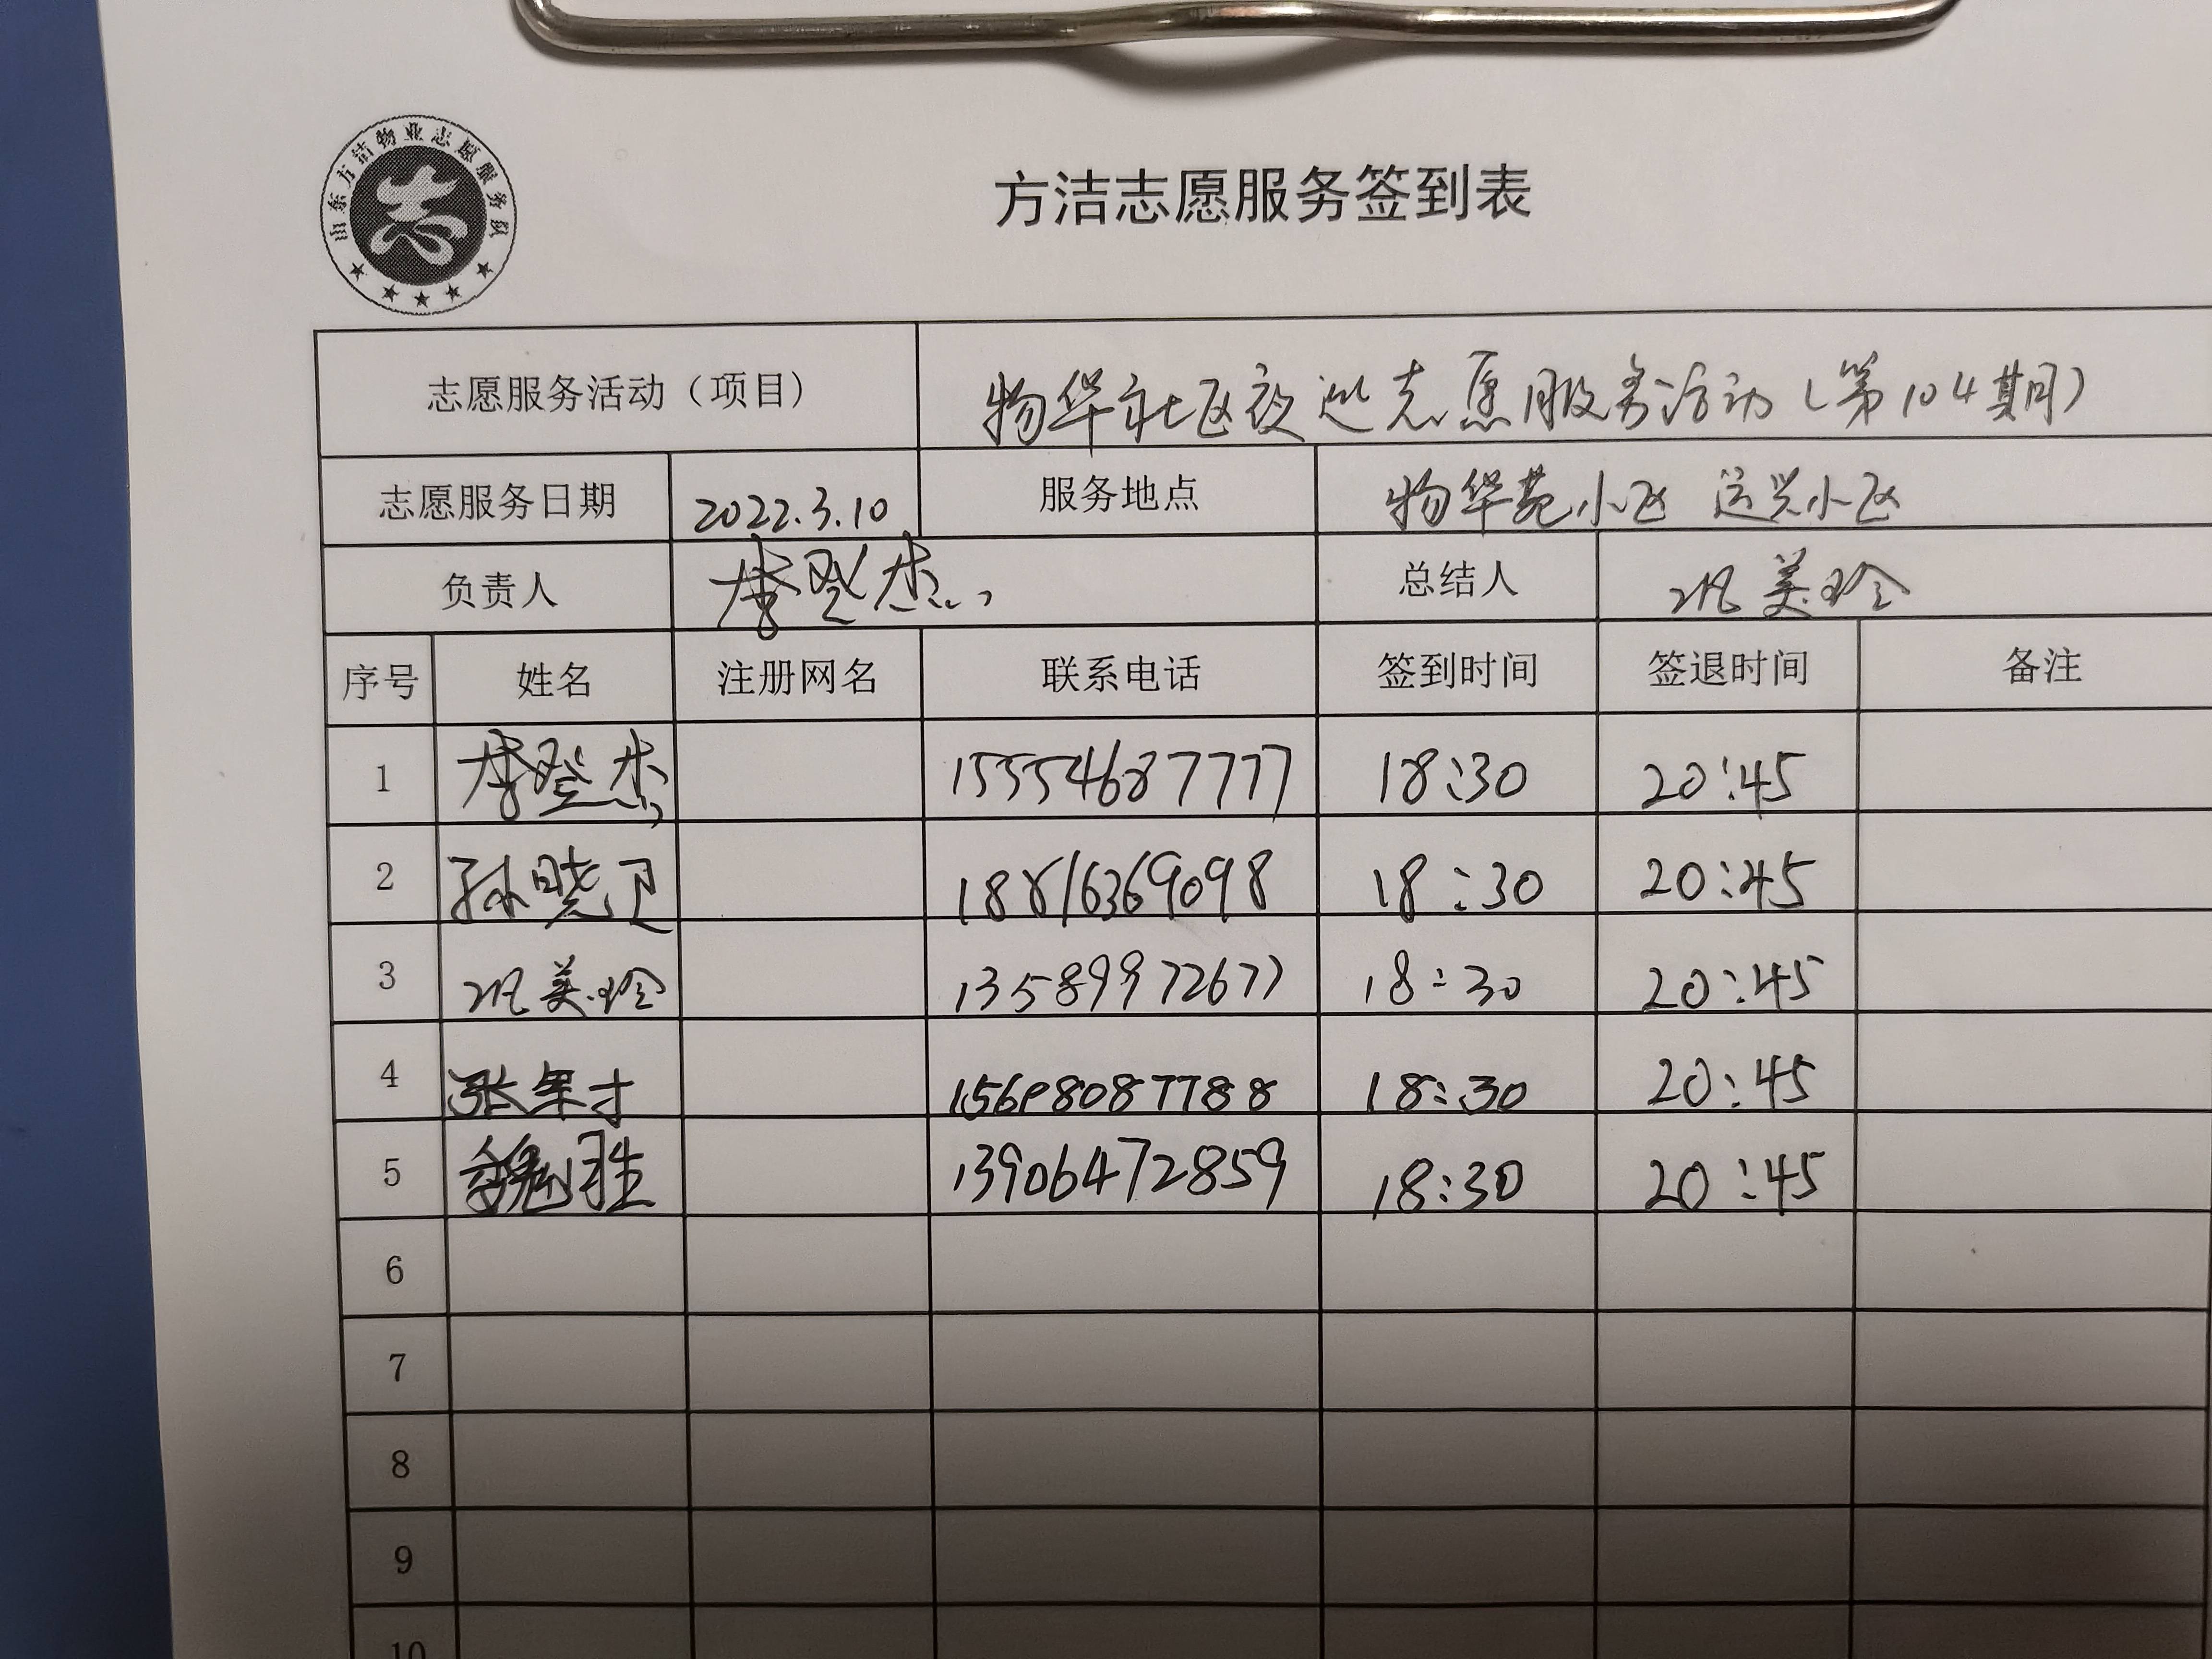 山东方洁物业志愿服务队
志
方洁志愿服务签到表
志愿服务活动（项目） 物华社区夜巡志愿服务活动（第104期）
志愿服务日期 2022.3.10 服务地点 物华苑小区 运兴小区
负责人 李登杰 总结人 美玲
序号 姓名 注册网名 联系电话 签到时间 签退时间 备注
1 李登杰 15554687777 18:30 20:45
2 孙晓卫 18816369098 18:30 20:45
3 美玲 13589972677 18:30 20:45
4 张军才 15698087788 18:30 20:45
5 魏胜 13906472859 18:30 20:45
6
7
8
9
10